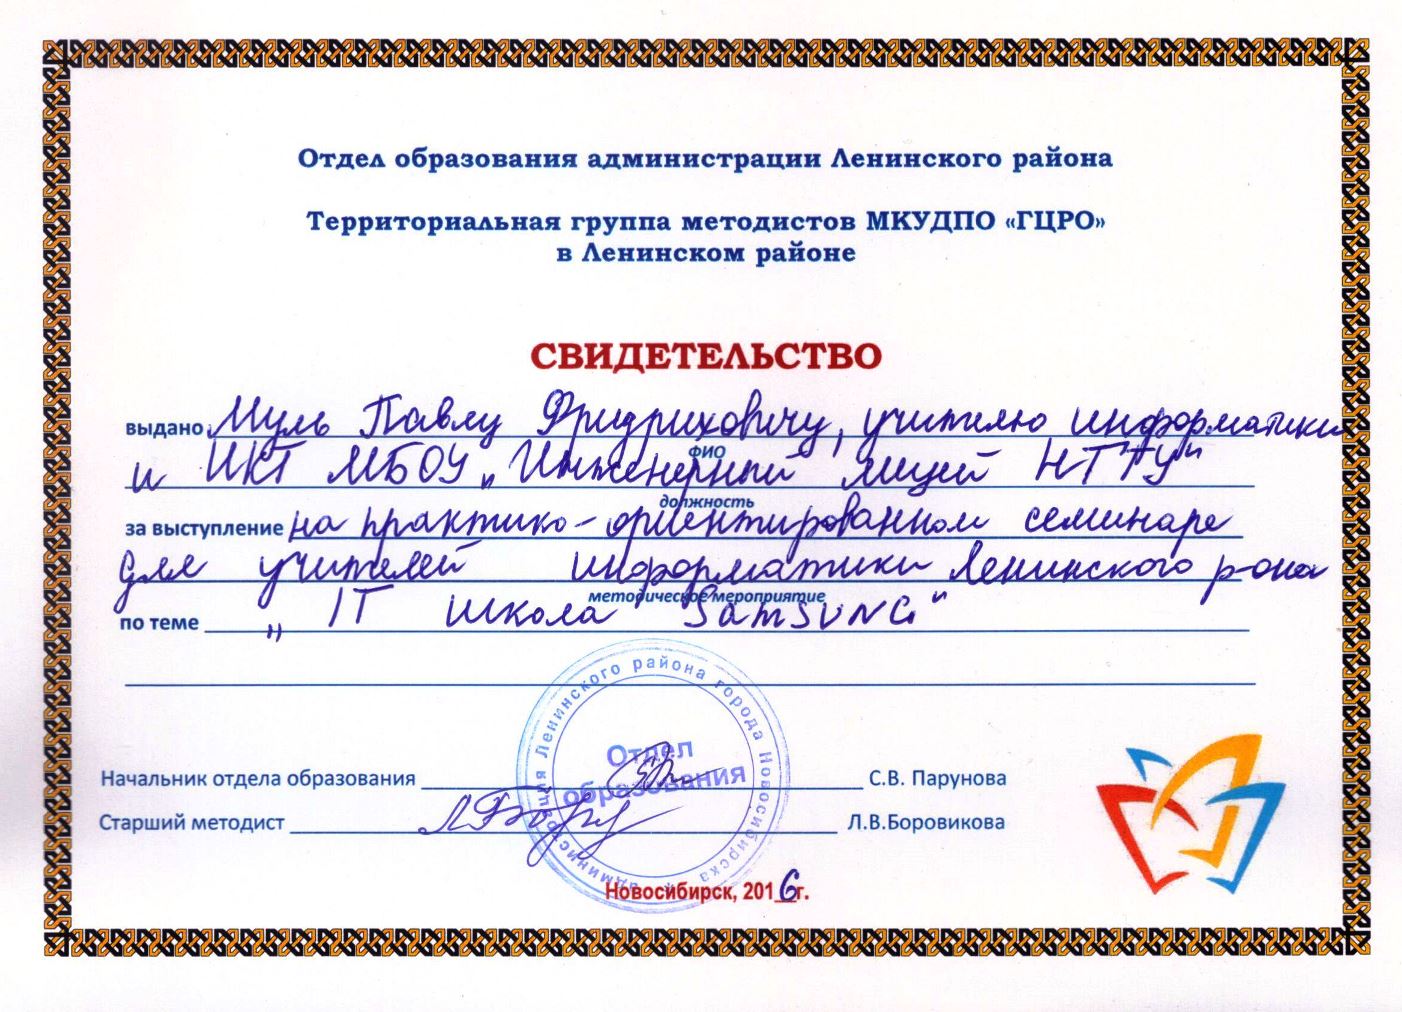 Отдел образования администрации Ленинского района
Территориальная группа методистов МКУДПО «ГЦРО»
в Ленинском районе
СВИДЕТЕЛЬСТВО
выдано Муль Павлу Фридриховичу, учителю информатики
ФИО
и ИКТ МБОУ „Инженерный лицей НГТУ"
должность
за выступление на практико-ориентированном семинаре
для учителей информатики Ленинского р-она
методическое мероприятие
по теме „IT школа Samsung"
администрация Ленинского района города Новосибирска
Отдел
образования
Начальник отдела образования С.В. Парунова
Старший методист Л.В.Боровикова
Новосибирск, 2016г.